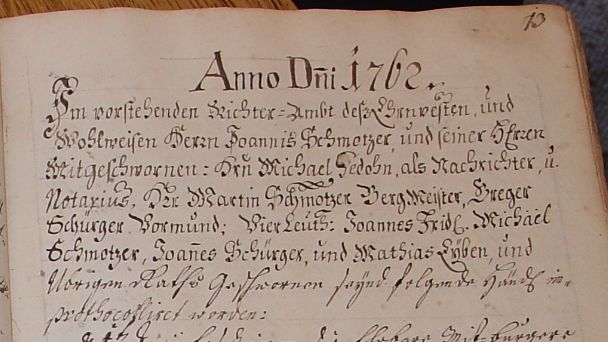 13
Anno Dñi 1762.
Im vorstehenden Richter=Ambt deß Ehrnvesten, und
Wohlweisen Herrn Joannis Schmotzer, und seiner Herren
Mitgeschwornen: Hrn Michael Hedohn, als Nachrichter, u.
Notarius, Hr Martin Schmotzer BergMeister, Greger
Schürger Vormund; VierLeuth: Joannes Fridl. Michäel
Schmotzer, Joañes Schürger, und Mathias Eyben, und
Übrigen Raths Geschwornen seynd folgende Händl im=
prothocolliret worden: